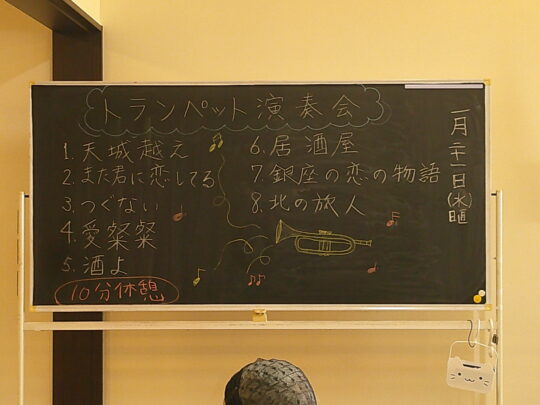 トランペット演奏会
1. 天城越え
2. また君に恋してる
3. つぐない
4. 愛燦燦
5. 酒よ
10分休憩
6. 居酒屋
7. 銀座の恋の物語
8. 北の旅人
一月二十一日(水)曜